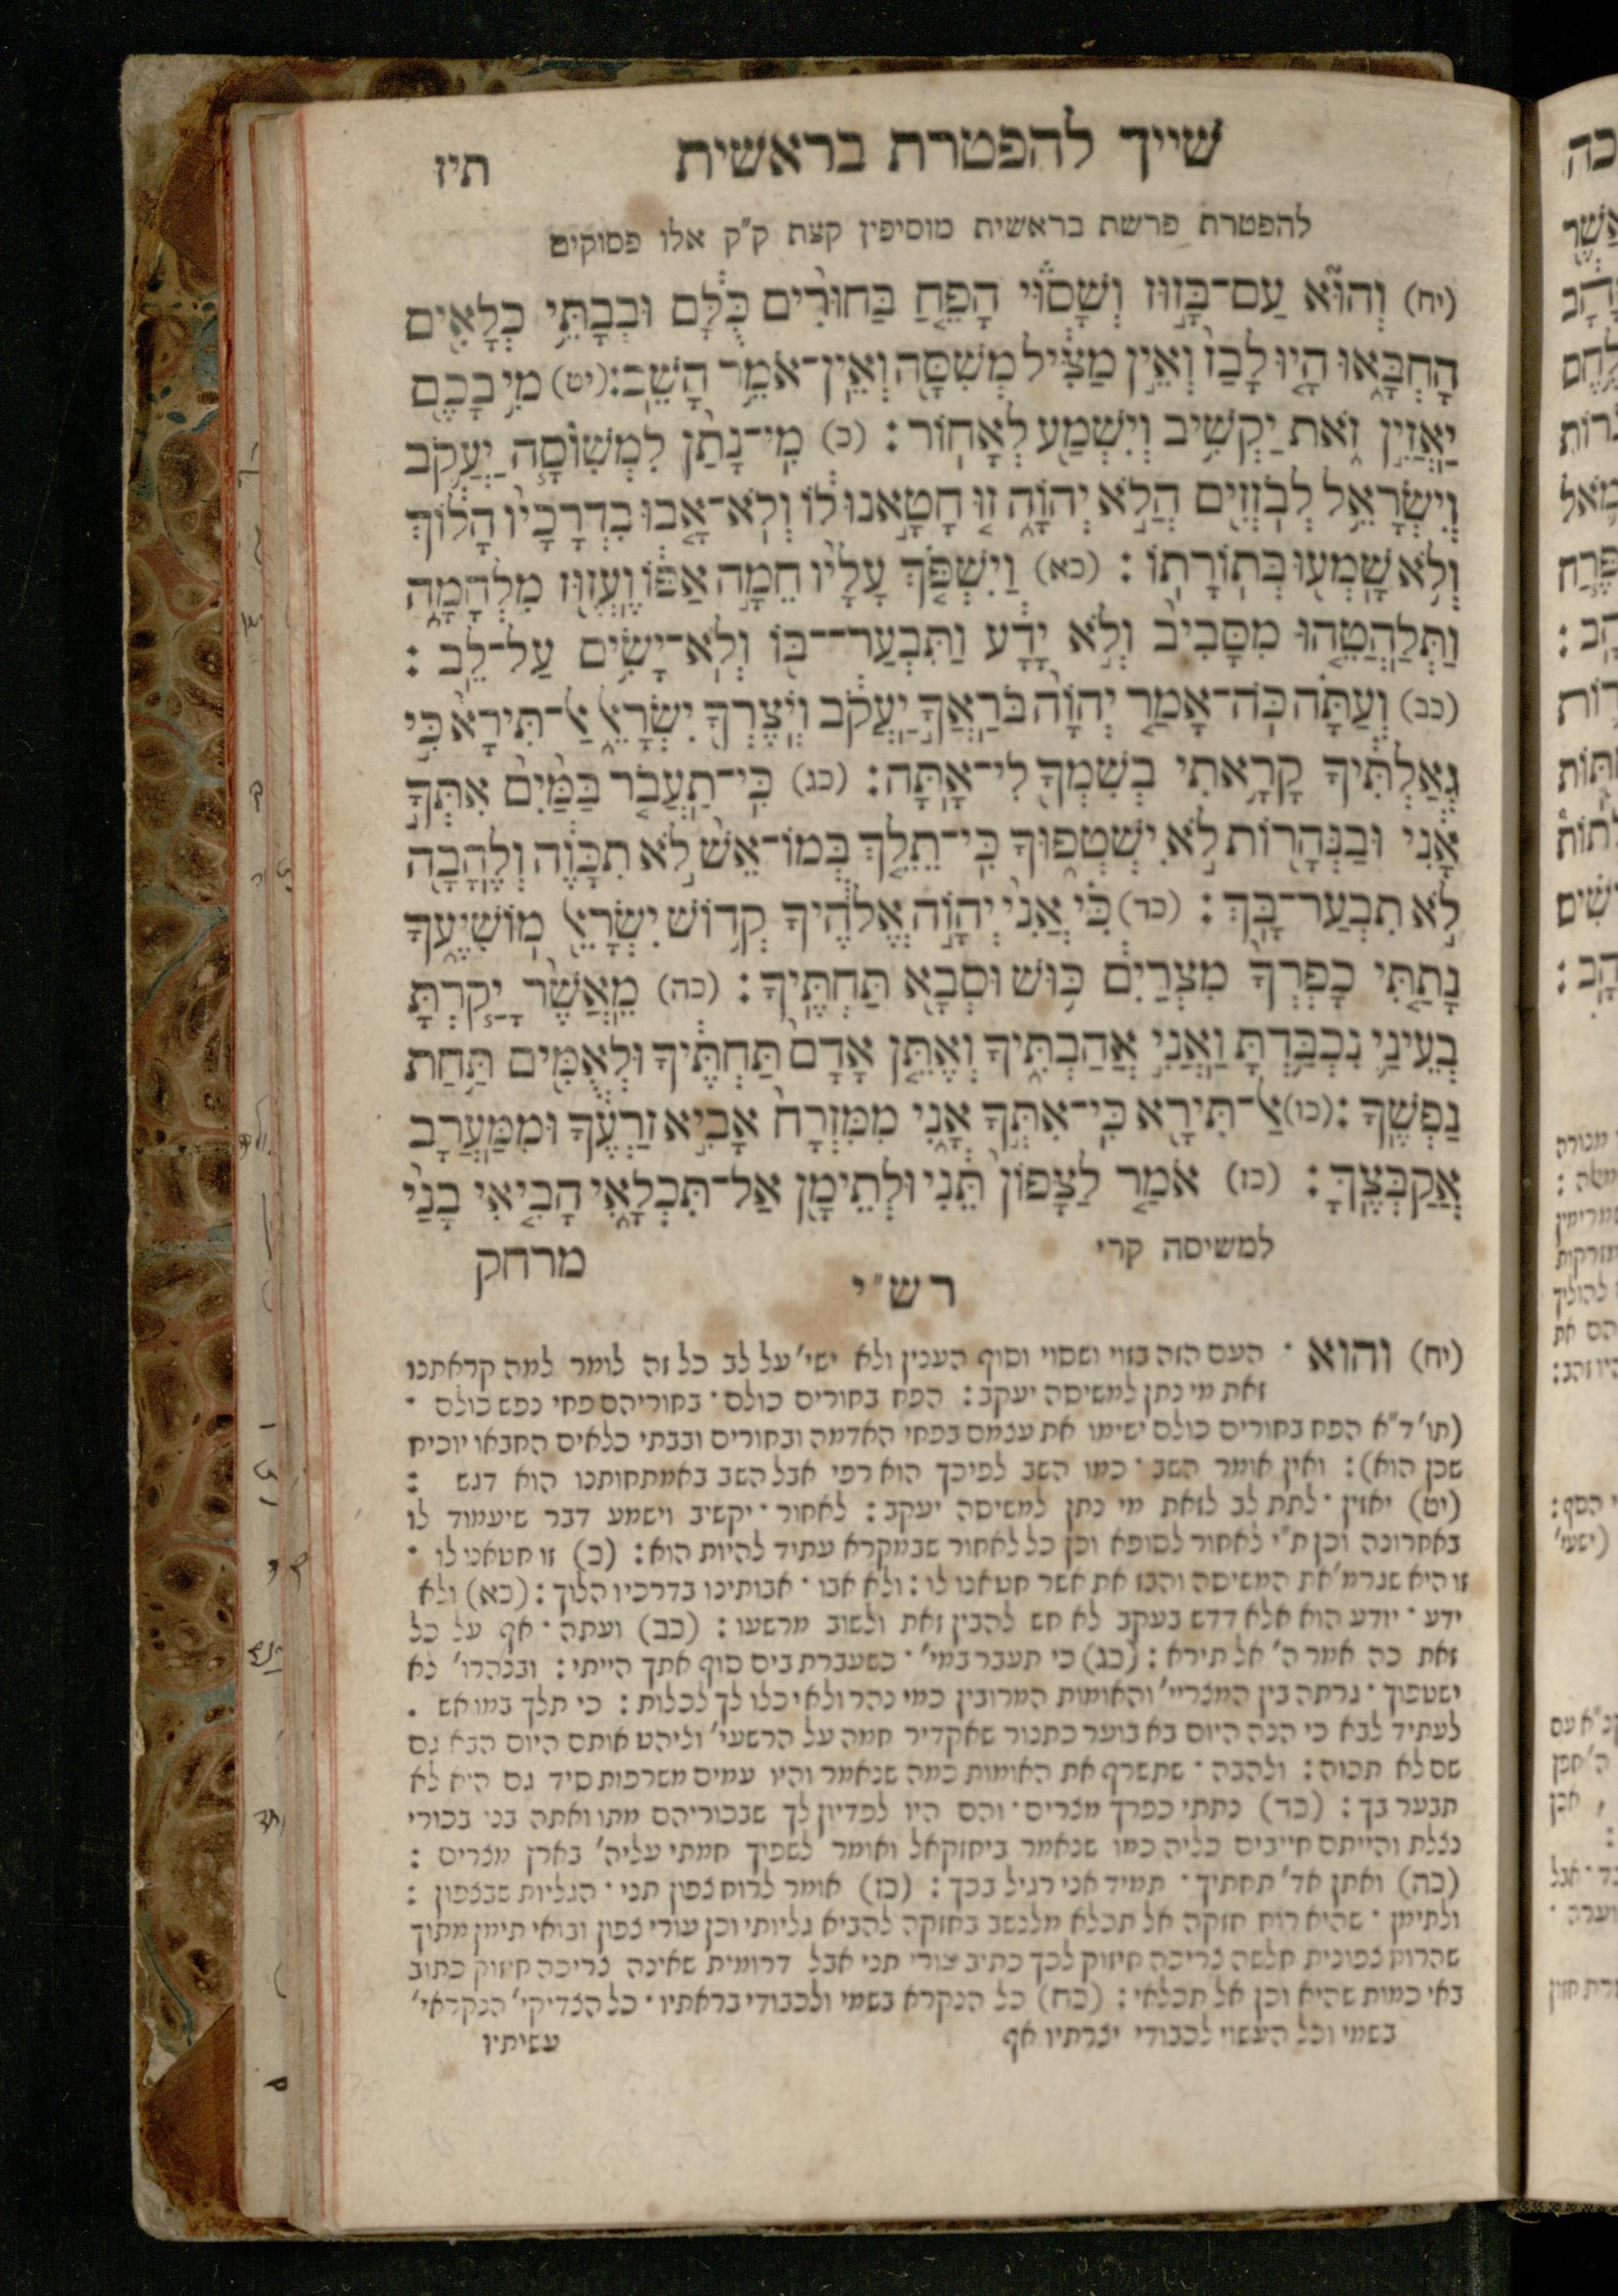 שייך להפטרת בראשית תיז
להפטרת פרשת בראשית מוסיפין קצת ק״ק אלו פסוקים
(יח) וְהוּא֮ עַם־בָּז֣וּז וְשָׁסוּי֒ הָפֵ֤חַ בַּחוּרִים֙ כֻּלָּ֔ם וּבְבָתֵּ֥י כְלָאִ֖ים
הָחְבָּ֑אוּ הָי֤וּ לָבַז֙ וְאֵ֣ין מַצִּ֔יל מְשִׁסָּ֖ה וְאֵֽין־אֹמֵ֥ר הָשַֽׁב׃ (יט) מִ֥י בָכֶ֖ם
יַאֲזִ֣ין זֹ֑את יַקְשִׁ֥יב וְיִשְׁמַ֖ע לְאָחֽוֹר׃ (כ) מִֽי־נָתַ֨ן לִמְשִׁוֹסָ֧ה יַעֲקֹ֛ב
וְיִשְׂרָאֵ֥ל לְבֹזְזִ֖ים הֲל֣וֹא יְהוָ֑ה ז֚וּ חָטָ֣אנוּ ל֔וֹ וְלֹֽא־אָב֤וּ בִדְרָכָיו֙ הָל֔וֹךְ
וְלֹ֥א שָׁמְע֖וּ בְּתוֹרָתֽוֹ׃ (כא) וַיִּשְׁפֹּ֤ךְ עָלָיו֙ חֵמָ֣ה אַפּ֔וֹ וֶעֱז֖וּז מִלְחָמָ֑ה
וַתְּלַהֲטֵ֤הוּ מִסָּבִיב֙ וְלֹ֣א יָדָ֔ע וַתִּבְעַר־בּ֖וֹ וְלֹֽא־יָשִׂ֥ים עַל־לֵֽב׃
(כב) וְעַתָּ֞ה כֹּֽה־אָמַ֤ר יְהוָה֙ בֹּרַאֲךָ֣ יַעֲקֹ֔ב וְיֹצֶרְךָ֖ יִשְׂרָאֵ֑ל אַל־תִּירָא֙ כִּ֣י
גְאַלְתִּ֔יךָ קָרָ֥אתִי בְשִׁמְךָ֖ לִי־אָֽתָּה׃ (כג) כִּֽי־תַעֲבֹ֤ר בַּמַּ֙יִם֙ אִתְּךָ֣
אָ֔נִי וּבַנְּהָר֖וֹת לֹ֣א יִשְׁטְפ֑וּךָ כִּֽי־תֵלֵ֤ךְ בְּמוֹ־אֵשׁ֙ לֹ֣א תִכָּוֶ֔ה וְלֶהָבָ֖ה
לֹ֥א תִבְעַר־בָּֽךְ׃ (כד) כִּ֗י אֲנִי֙ יְהוָ֣ה אֱלֹהֶ֔יךָ קְד֥וֹשׁ יִשְׂרָאֵ֖ל מוֹשִׁיעֶ֑ךָ
נָתַ֤תִּי כָפְרְךָ֙ מִצְרַ֔יִם כּ֥וּשׁ וּסְבָ֖א תַּחְתֶּֽיךָ׃ (כה) מֵאֲשֶׁ֨ר יָקַ֧רְתָּ
בְעֵינַ֛י נִכְבַּ֖דְתָּ וַאֲנִ֣י אֲהַבְתִּ֑יךָ וְאֶתֵּ֤ן אָדָם֙ תַּחְתֶּ֔יךָ וּלְאֻמִּ֖ים תַּ֥חַת
נַפְשֶֽׁךָ׃ (כו) אַל־תִּירָ֖א כִּֽי־אִתְּךָ֣ אָ֑נִי מִמִּזְרָח֙ אָבִ֣יא זַרְעֶ֔ךָ וּמִמַּעֲרָ֖ב
אֲקַבְּצֶֽךָּ׃ (כז) אֹמַ֤ר לַצָּפוֹן֙ תֵּ֔נִי וּלְתֵימָ֖ן אַל־תִּכְלָ֑אִי הָבִ֤יאִי בָנַי֙
למשיסה קרי
מרחק
רש״י
(יח) והוא · העם הזה בזוי ושסוי וסוף הענין ולא ישי׳ על לב כל זה לומר למה קראתנו
זאת מי נתן למשיסה יעקב: הפח בחורים כולם · בחוריהם פחי נפש כולם ·
(תו׳ ד״א הפח בחורים כולם ישימו את עצמם בפחי האדמה ובחורים ובבתי כלאים החבאו יוכיח
שכן הוא): ואין אומר השב · כמו השב לפיכך הוא רפי אבל השב באמתחותנו הוא דגש :
(יט) יאזין · לתת לב לזאת מי נתן למשיסה יעקב: לאחור · יקשיב וישמע דבר שיעמוד לו
באחרונה וכן ת״י לאחור לסופא וכן כל לאחור שבמקרא עתיד להיות הוא: (כ) זו חטאנו לו ·
זו היא שגרמ׳ את המשיסה והבז את אשר חטאנו לו: ולא אבו · אבותינו בדרכיו הלוך: (כא) ולא
ידע · יודע הוא אלא דדש בעקב לא חש להבין זאת ולשוב מרשעו: (כב) ועתה · אף על כל
זאת כה אמר ה׳ אל תירא: (כג) כי תעבר במי׳ · כשעברת בים סוף אתך הייתי: ובנהרו׳ לא
ישטפוך · גרתה בין המצריי׳ והאומות המרובין כמי נהר ולא יכלו לך לכלות: כי תלך במו אש .
לעתיד לבא כי הנה היום בא בוער כתנור שאקדיר חמה על הרשעי׳ וליהט אותם היום הבא גם
שם לא תכוה: ולהבה · שתשרף את האומות כמה שנאמר והיו עמים משרפות סיד גם היא לא
תבער בך: (כד) נתתי כפרך מצרים · והם היו לפדיון לך שבכוריהם מתו ואתה בני בכורי
נצלת והייתם חייבים כליה כמו שנאמר ביחזקאל ואומר לשפוך חמתי עליה׳ בארץ מצרים :
(כה) ואתן אד׳ תחתיך · תמיד אני רגיל בכך: (כז) אומר לרוח צפון תני · הגליות שבצפון :
ולתימן · שהיא רוח חזקה אל תכלא מלנשב בחזקה להביא גליותי וכן עורי צפון ובואי תימן מתוך
שהרוח צפונית חלשה צריכה חיזוק לכך כתיב עורי תני אבל דרומית שאינה צריכה חיזוק כתוב
באי כמות שהיא וכן אל תכלאי: (כח) כל הנקרא בשמי ולכבודי בראתיו · כל הצדיקי׳ הנקראי׳
בשמי וכל העשוי לכבודי יצרתיו אף
עשיתיו